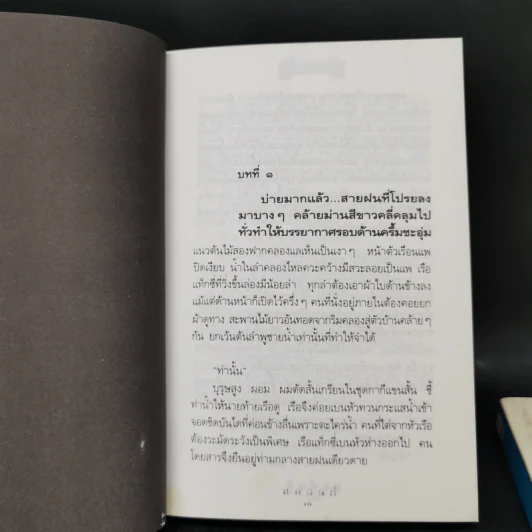 บทที่ ๑
บ่ายมากแล้ว...สายฝนที่โปรยลง
มาบางๆ คล้ายม่านสีขาวคลี่คลุมไป
ทั่วทำให้บรรยากาศรอบด้านครึ้มชะอุ่ม
แนวต้นไม้สองฟากคลองแลเห็นเป็นเงาๆ หน้าตัวเรือนแพ
ปิดเงียบ น้ำในลำคลองไหลคว้างมีสวะลอยเป็นแพ เรือ
แท็กซี่ที่วิ่งขึ้นล่องมีน้อยลำ ทุกลำต้องเอาผ้าใบด้านข้างลง
แม้แต่ด้านหน้าก็เปิดไว้ครึ่งๆ คนที่นั่งอยู่ภายในต้องคอยยก
ผ้าดูทาง สะพานไม้ยาวอันทอดจากริมคลองสู่ตัวบ้านคล้ายๆ
กัน ยกเว้นต้นลำพูชายน้ำเท่านั้นที่ทำให้จำได้
"ท่านั้น"
บุรุษสูง ผอม ผมตัดสั้นเกรียนในชุดกากีแขนสั้น ชี้
ท่าน้ำให้นายท้ายเรือดู เรือจึงค่อยเบนหัวทวนกระแสน้ำเข้า
จอดชิดบันไดที่ค่อนข้างลื่นเพราะตะไคร่น้ำ คนที่ไต่จากหัวเรือ
ต้องระมัดระวังเป็นพิเศษ เรือแท็กซี่เบนหัวห่างออกไป คน
โดยสารจึงยืนอยู่ท่ามกลางสายฝนเดียวดาย